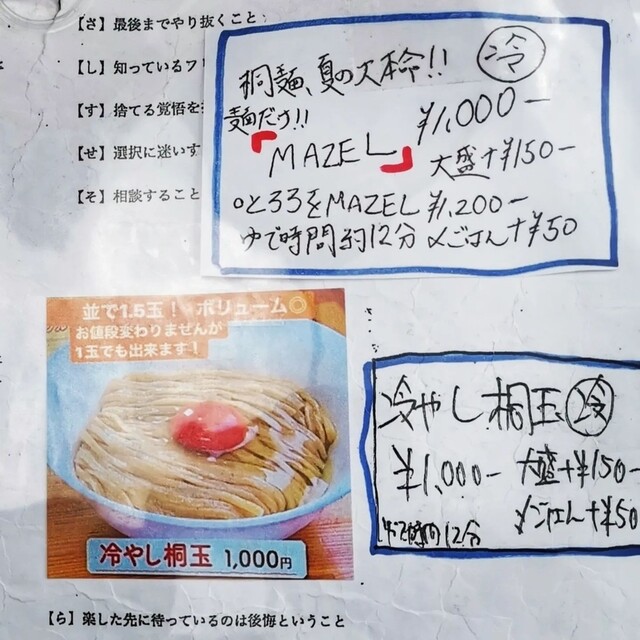 【さ】最後までやり抜くこと
【し】知っているフ
【す】捨てる覚悟を
【せ】選択に迷いす
【そ】相談すること
桐麺、夏の大本命!! 冷
麺だけ!! ¥1,000-
「MAZEL」
大盛+¥150-
○とろろをMAZEL ¥1,200-
ゆで時間約12分 〆ごはん+¥50
並で1.5玉！ ボリューム◎
お値段変わりませんが
1玉でも出来ます！
冷やし桐玉 1,000円
冷やし桐玉 冷
¥1,000- 大盛+¥150-
ゆで時間12分 〆ごはん+¥50
【ら】楽した先に待っているのは後悔ということ